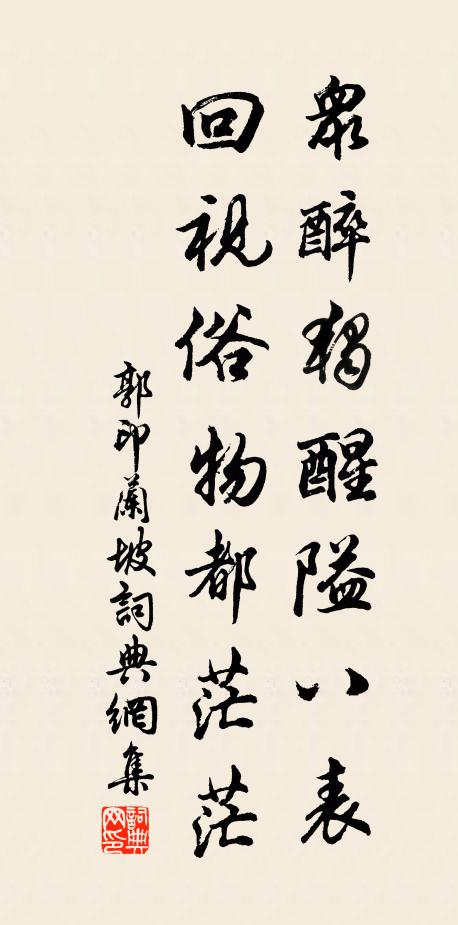 眾醉獨醒隘八表
回視俗物都茫茫
郭印蘭坡詞典網集
詞典
网印